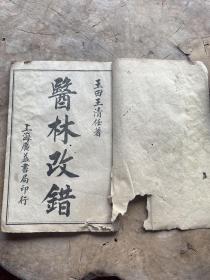 玉田王清任著
醫林改錯
上海廣益書局印行